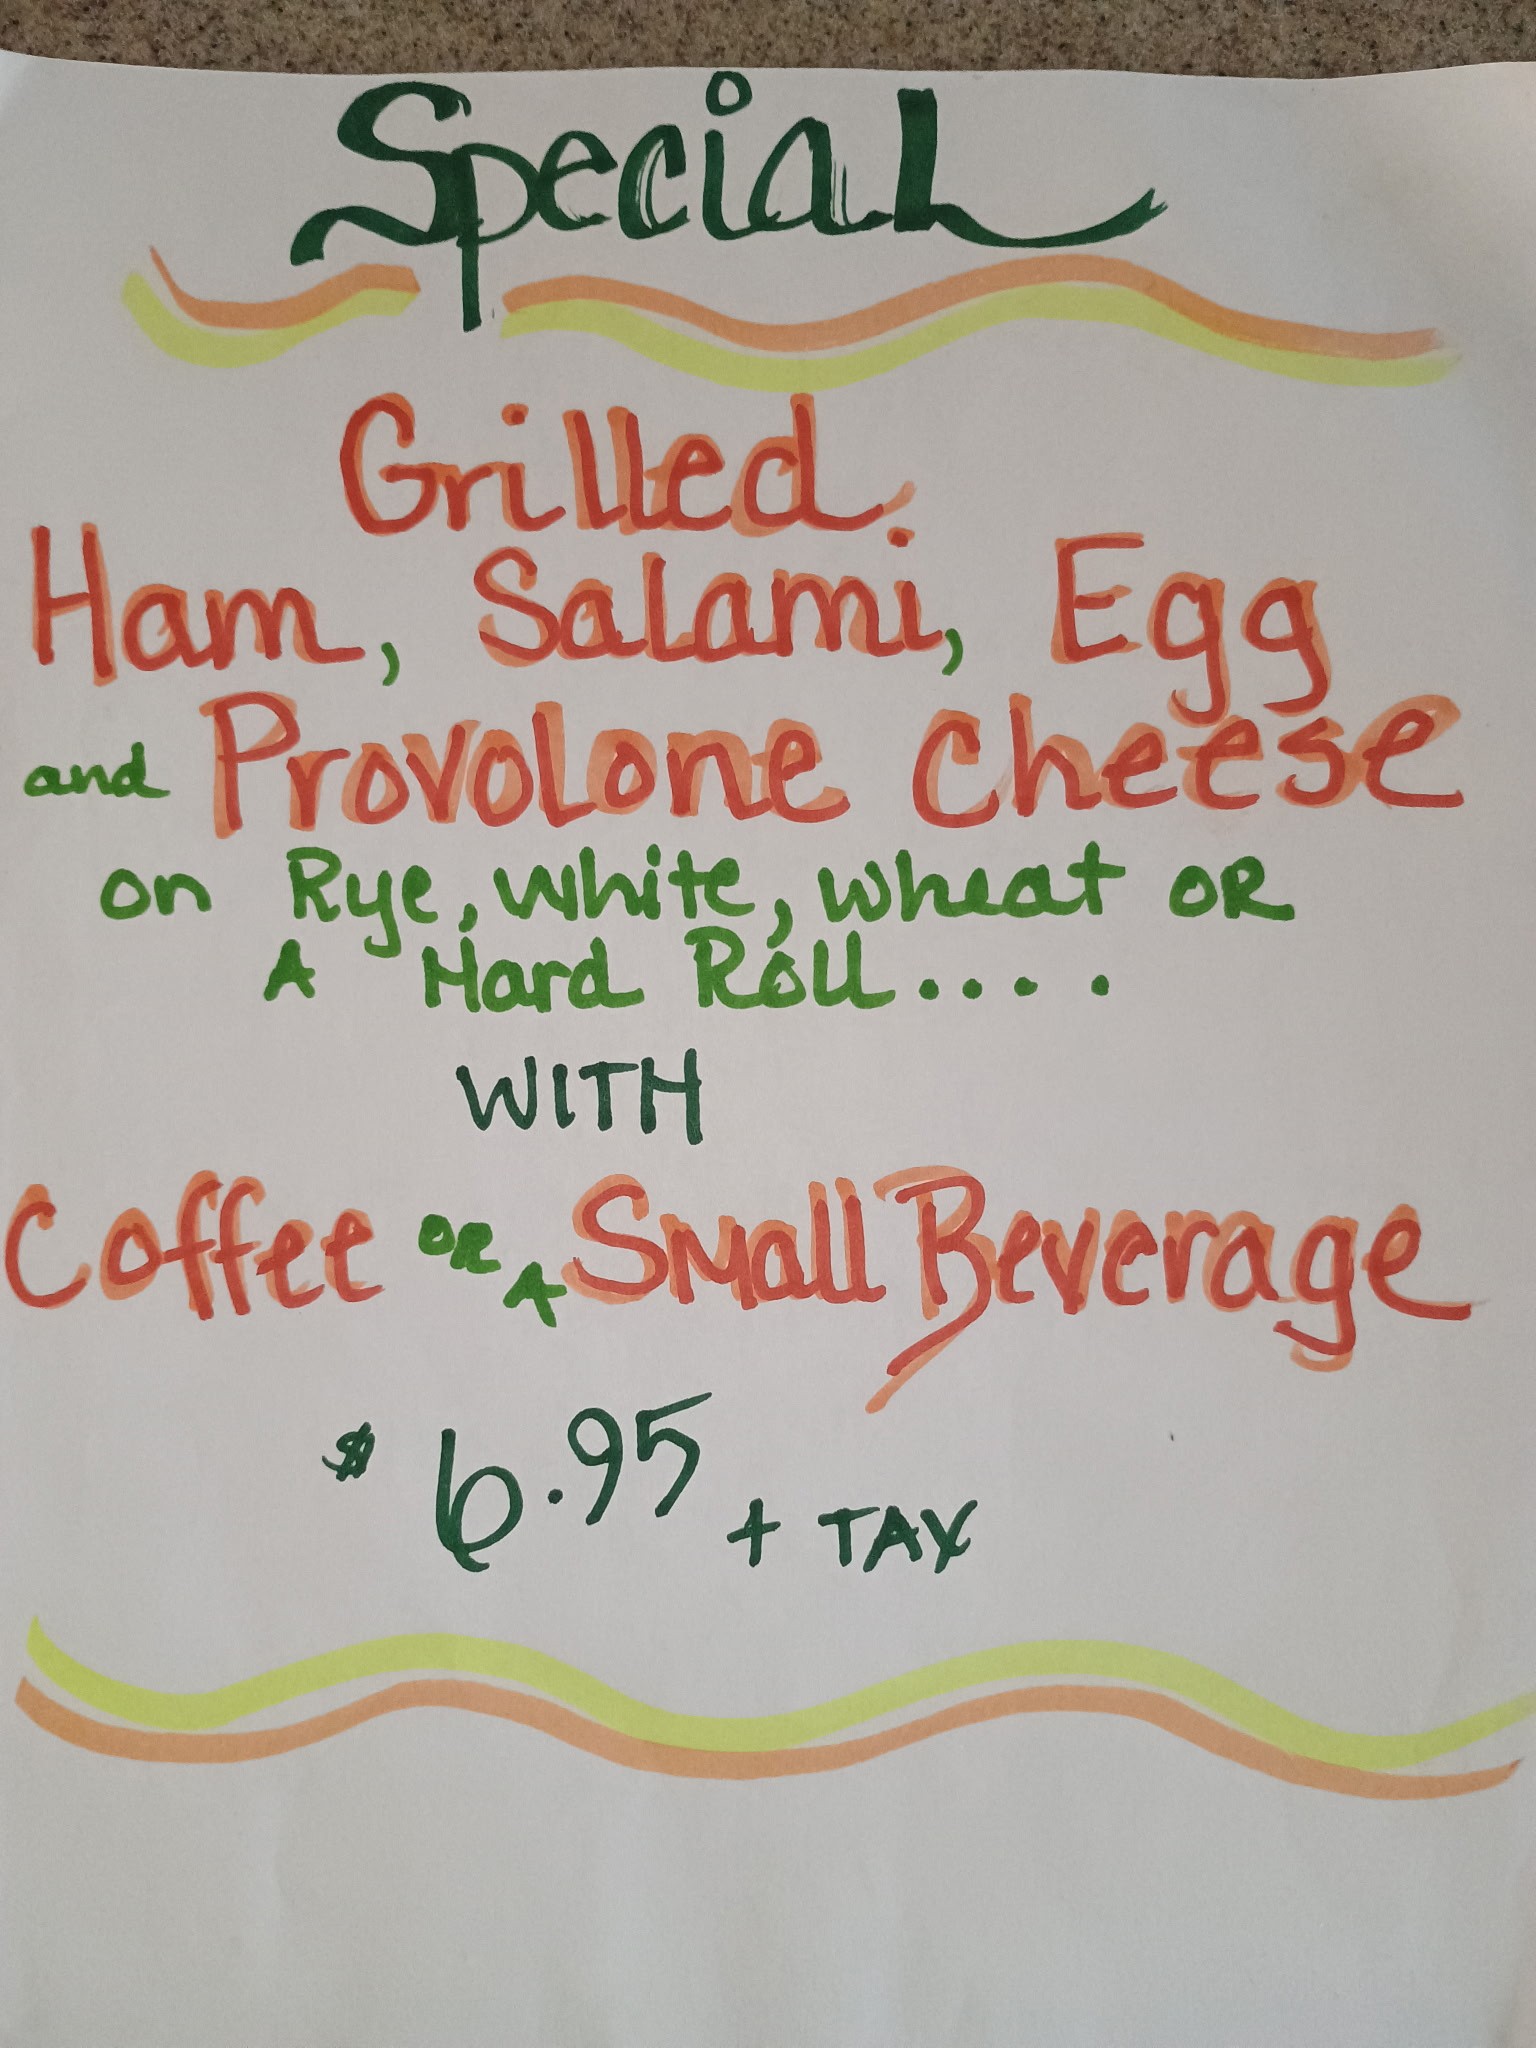 Special
Grilled
Ham, Salami, Egg
and Provolone Cheese
on Rye, White, Wheat OR
A Hard Roll....
WITH
Coffee OR A Small Beverage
$6.95 + TAX